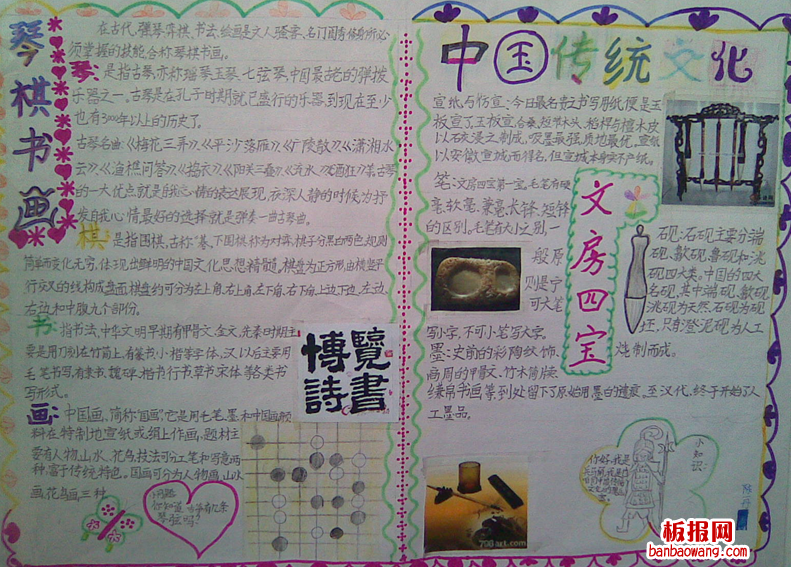 琴棋书画
在古代,弹琴、弈棋、书法、绘画是文人骚客、名门闺秀修身所必
须掌握的技能,合称琴棋书画。
琴:是指古琴,亦称瑶琴、玉琴、七弦琴,中国最古老的弹拨
乐器之一。古琴是在孔子时期就已盛行的乐器,到现在至少
也有3000年以上的历史了。
古琴名曲:《梅花三弄》、《平沙落雁》、《广陵散》、《潇湘水
云》、《渔樵问答》、《捣衣》、《阳关三叠》、《流水》
的一大优点就是自我心情的表达展现,夜深人静的时候,为抒
发自我心情最好的选择就是弹奏一曲古琴曲。
棋:是指围棋,古称"弈",下围棋称为对弈,棋子分黑白两色,规则
简单而变化无穷,体现出鲜明的中国文化思想精髓,棋盘为正方形,由横竖平
行交叉的线构成盘面,棋盘约可分为左上角、右上角、左下角、右下角、上边、下边、左边、
右边和中腹九个部份。
书:指书法,中华文明早期有甲骨文、金文,先秦时期主
要是用刀刻在竹简上,有篆书、小楷等字体,汉以后主要用
毛笔书写,有隶书、魏碑、楷书、行书、草书、宋体等各类书
写形式。
画:中国画,简称"国画",它是用毛笔、墨和中国画颜
料在特制地宣纸或绢上作画,题材主
要有人物、山水、花鸟,技法可分工笔和写意两
种,富于传统特色。国画可分为人物画、山水
画、花鸟画三种
博覽
詩書
问题:
你知道古筝有几条
琴弦吗?
中国传统文化
宣纸与仿宣:今日最名贵之书写用纸便是玉
板宣了,玉板宣合桑、短节木头、稻秆与檀木皮
以石灰浸之制成,吸墨最强,质地最优,宣纸
以安徽宣城而得名,但宣城本身实不产纸。
笔:文房四宝第一宝,毛笔有硬
毫、软毫、兼毫、长锋、短锋
的区别。毛笔有大小之别,一
般原
则是宁
可大笔
写小字,不可小笔写大字。
文房四宝
砚:石砚主要分端
砚、歙砚、鲁砚和洮
砚四大类。中国的四大
名砚,其中端砚、歙砚、
洮砚为天然,石砚为砚
坯,只有澄泥砚为人工
烧制而成。
墨:史前的彩陶纹饰、
商周的甲骨文、竹木简牍、
缣帛书画等到处留下了原始用墨的遗痕,至汉代,终于开始了人
工墨品。
小知识:
你好,我是
板报网
banbaowang.com
706art.com